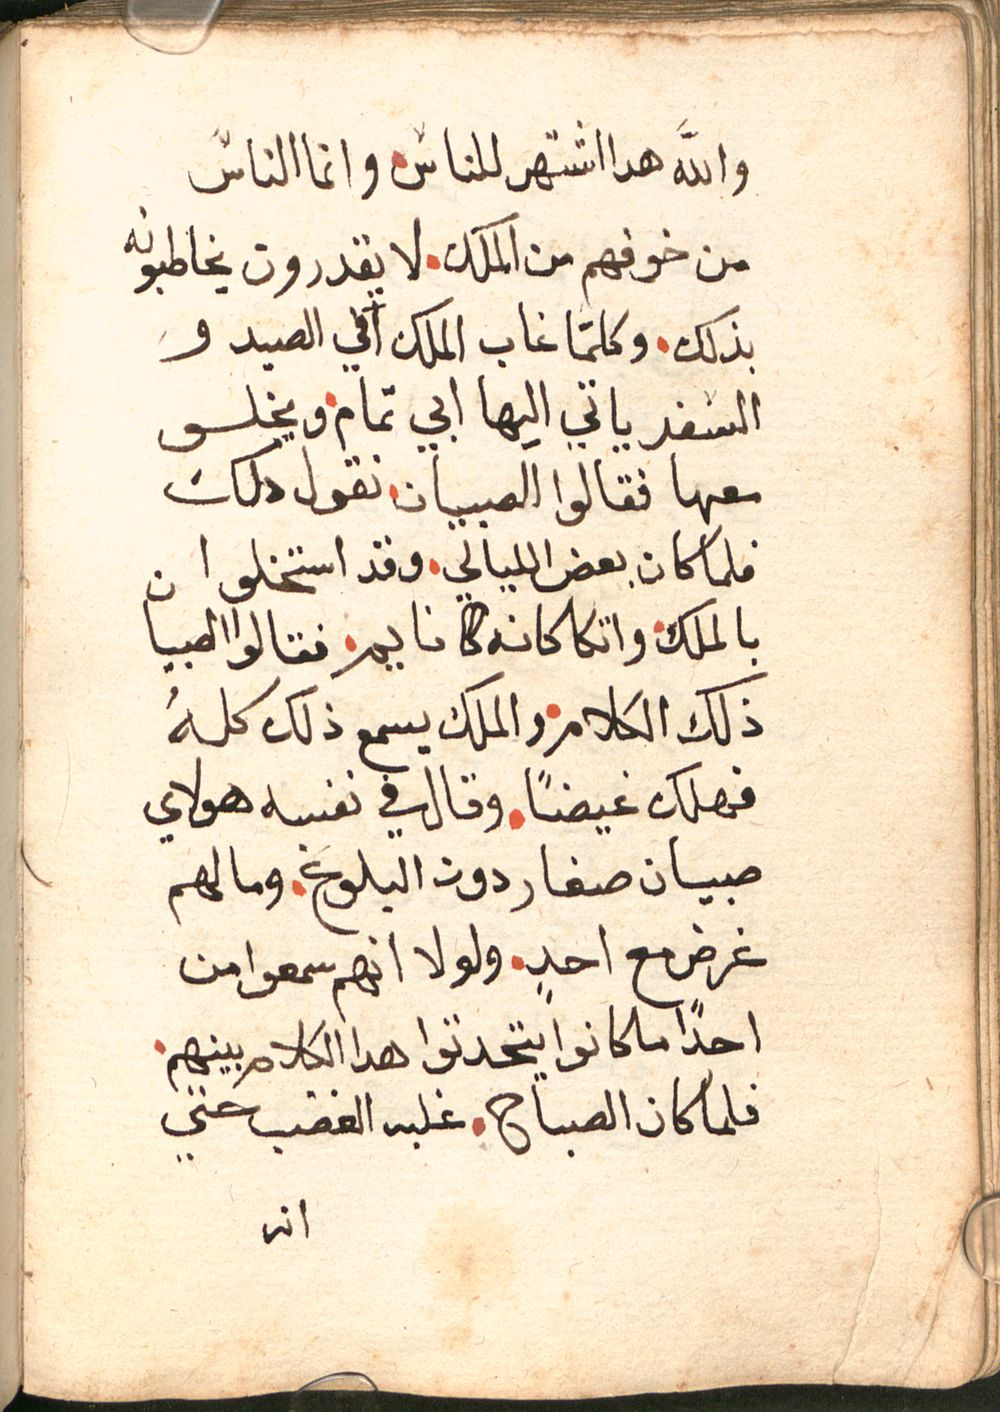 والله هدا اشتهر للناس. وانما الناس
من خوفهم من الملك. لا يقدرون يخاطبونه
بذلك. وكلما غاب الملك في الصيد و
السفر ياتي اليها ابي تمام. ويختلسو
معها فقالوا الصبيان. نقول دلك
فلما كان بعض الليالي. وقد استخلوا
بالملك. واتكا كانه نايم. فقالوا الصبيان
ذلك الكلام. والملك يسمع ذلك كلهُ
فهلك غيضًا. وقال في نفسه هولاي
صبيان صغار دون البلوغ. وما لهم
غرض مع احدٍ. ولولا انهم سمعوا من
احدًا ما كانوا يتحدثوا هدا الكلام بينهم.
فلما كان الصباح. غلبه الغضب حتي
انه